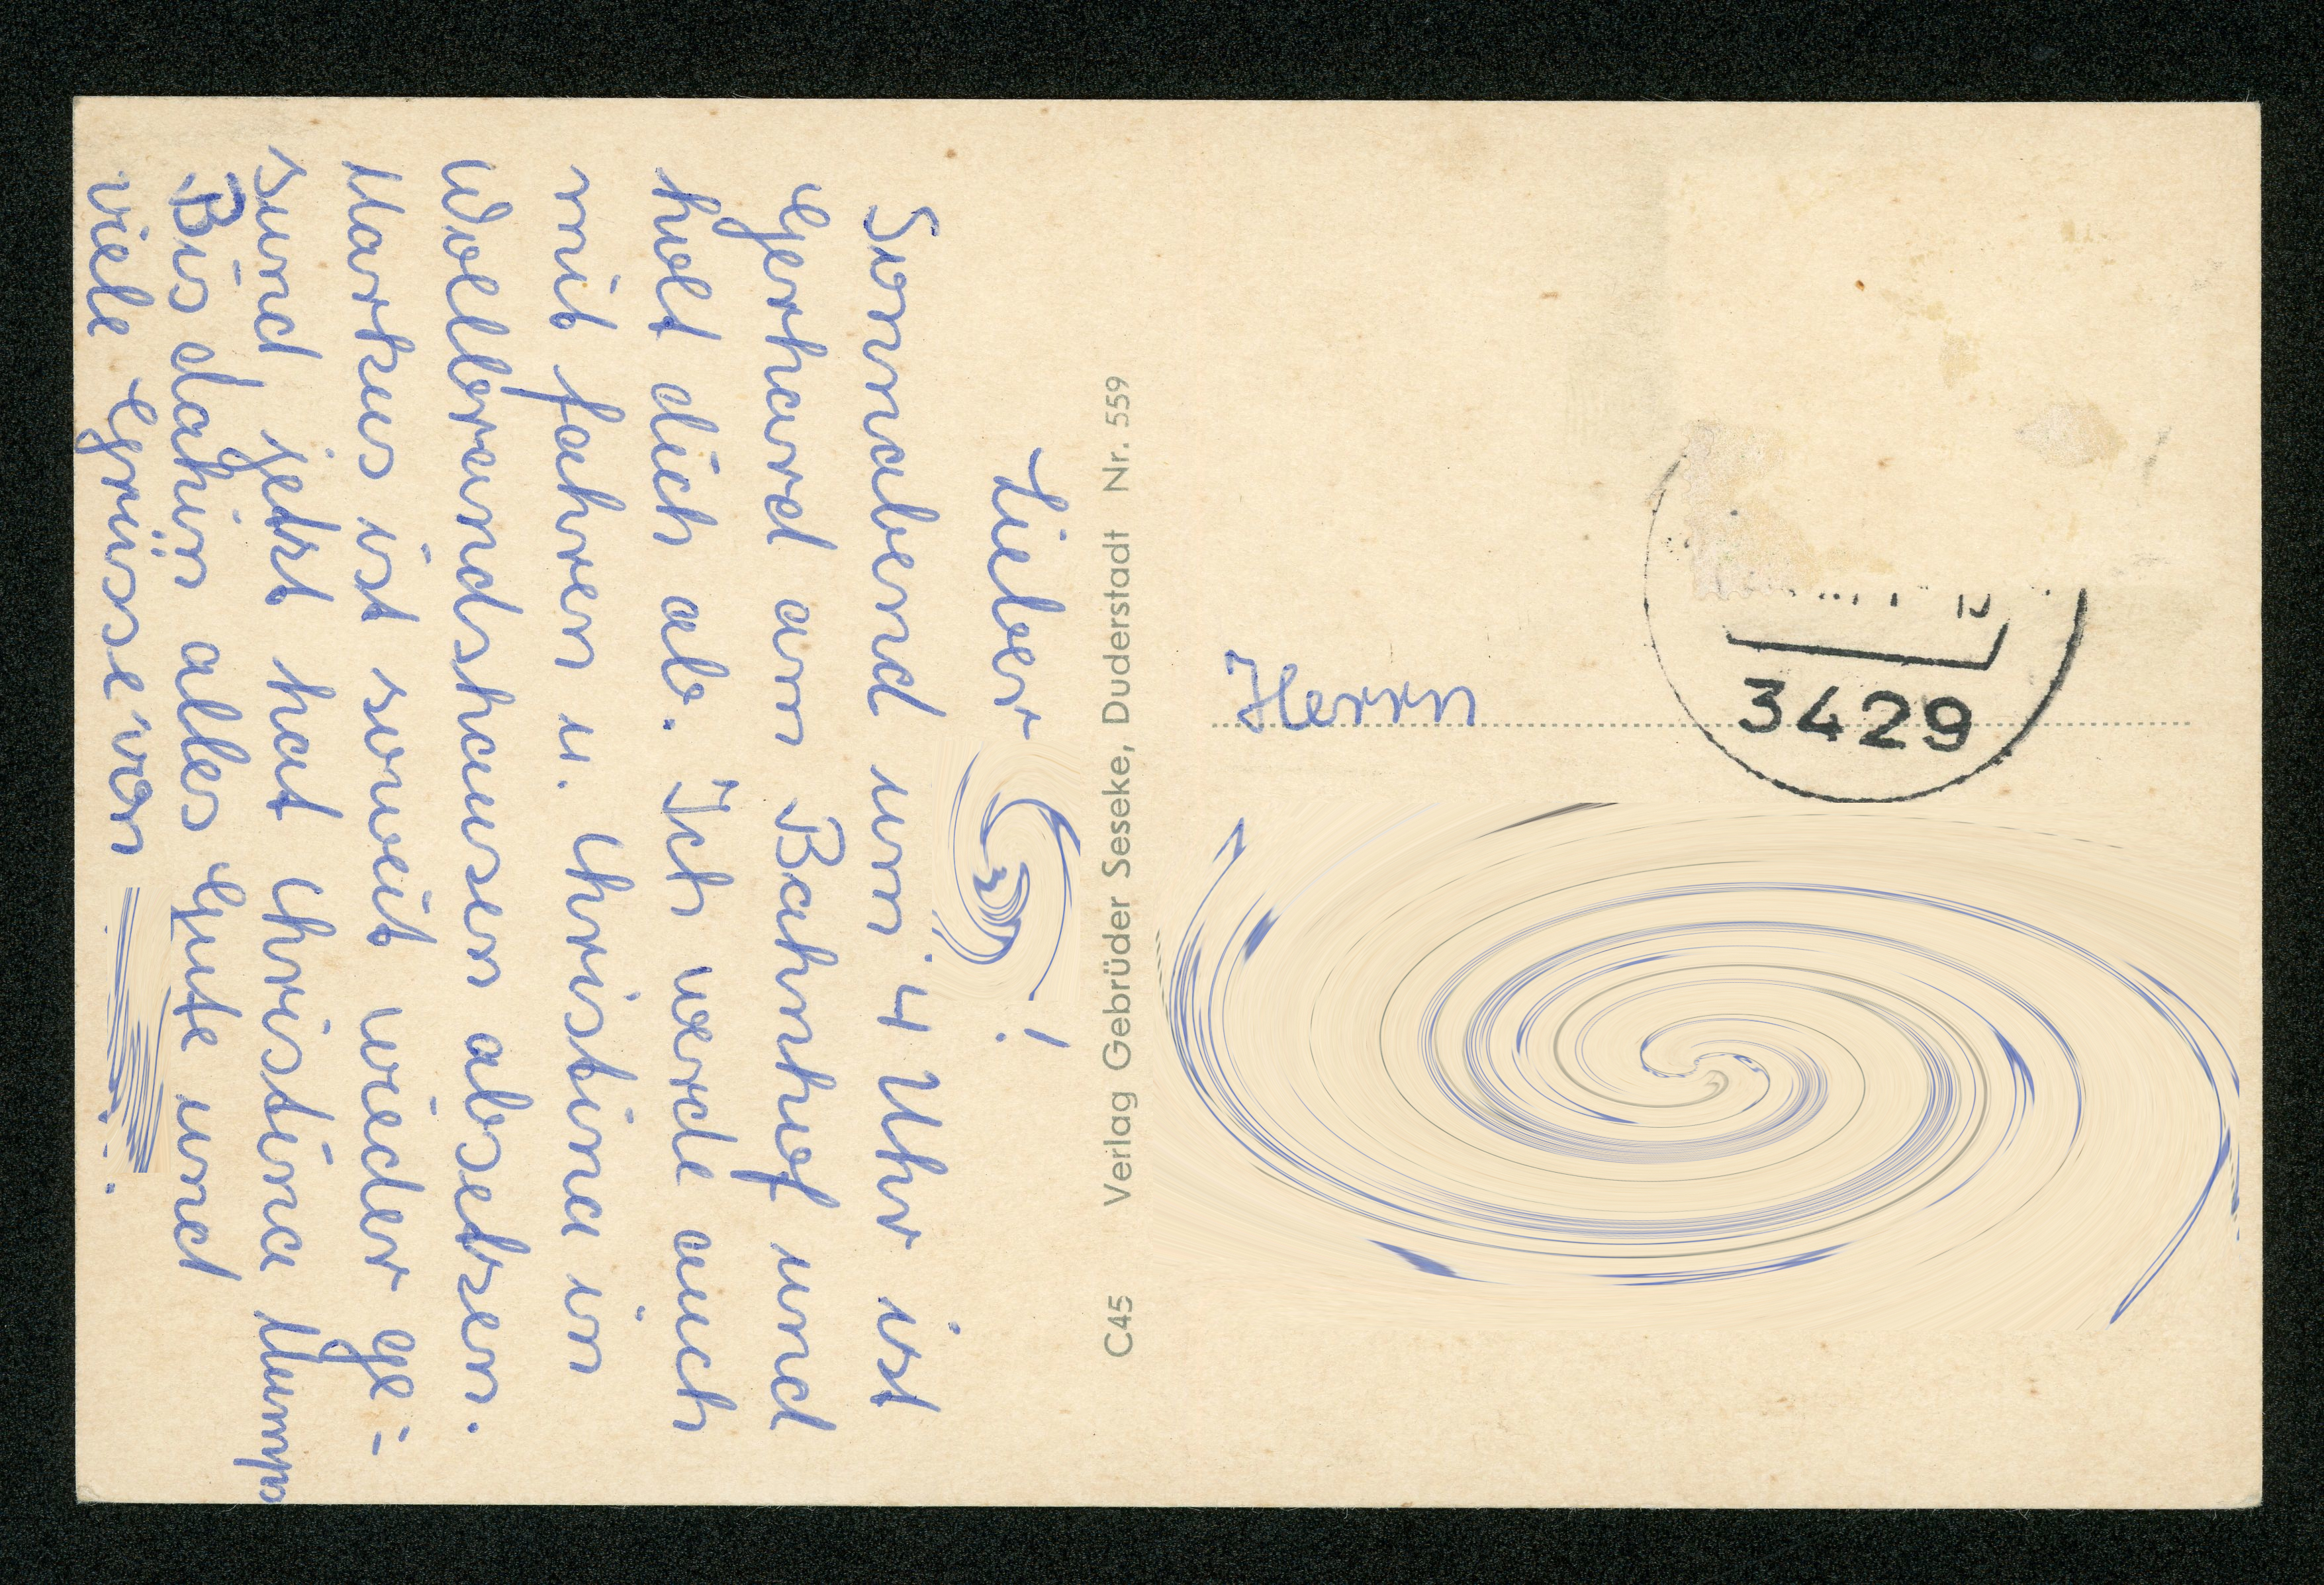 Lieber !
Sonnabend um 4 Uhr ist
Gerhard am Bahnhof und
holt dich ab. Ich werde auch
mit fahren u. Christina in
Wollbrandshausen absetzen.
Markus ist soweit wieder ge-
sund jetzt hat Christina Mumps
Bis dahin alles Gute und
viele Grüsse von
C45 Verlag Gebrüder Seseke, Duderstadt Nr. 559
3429
Herrn